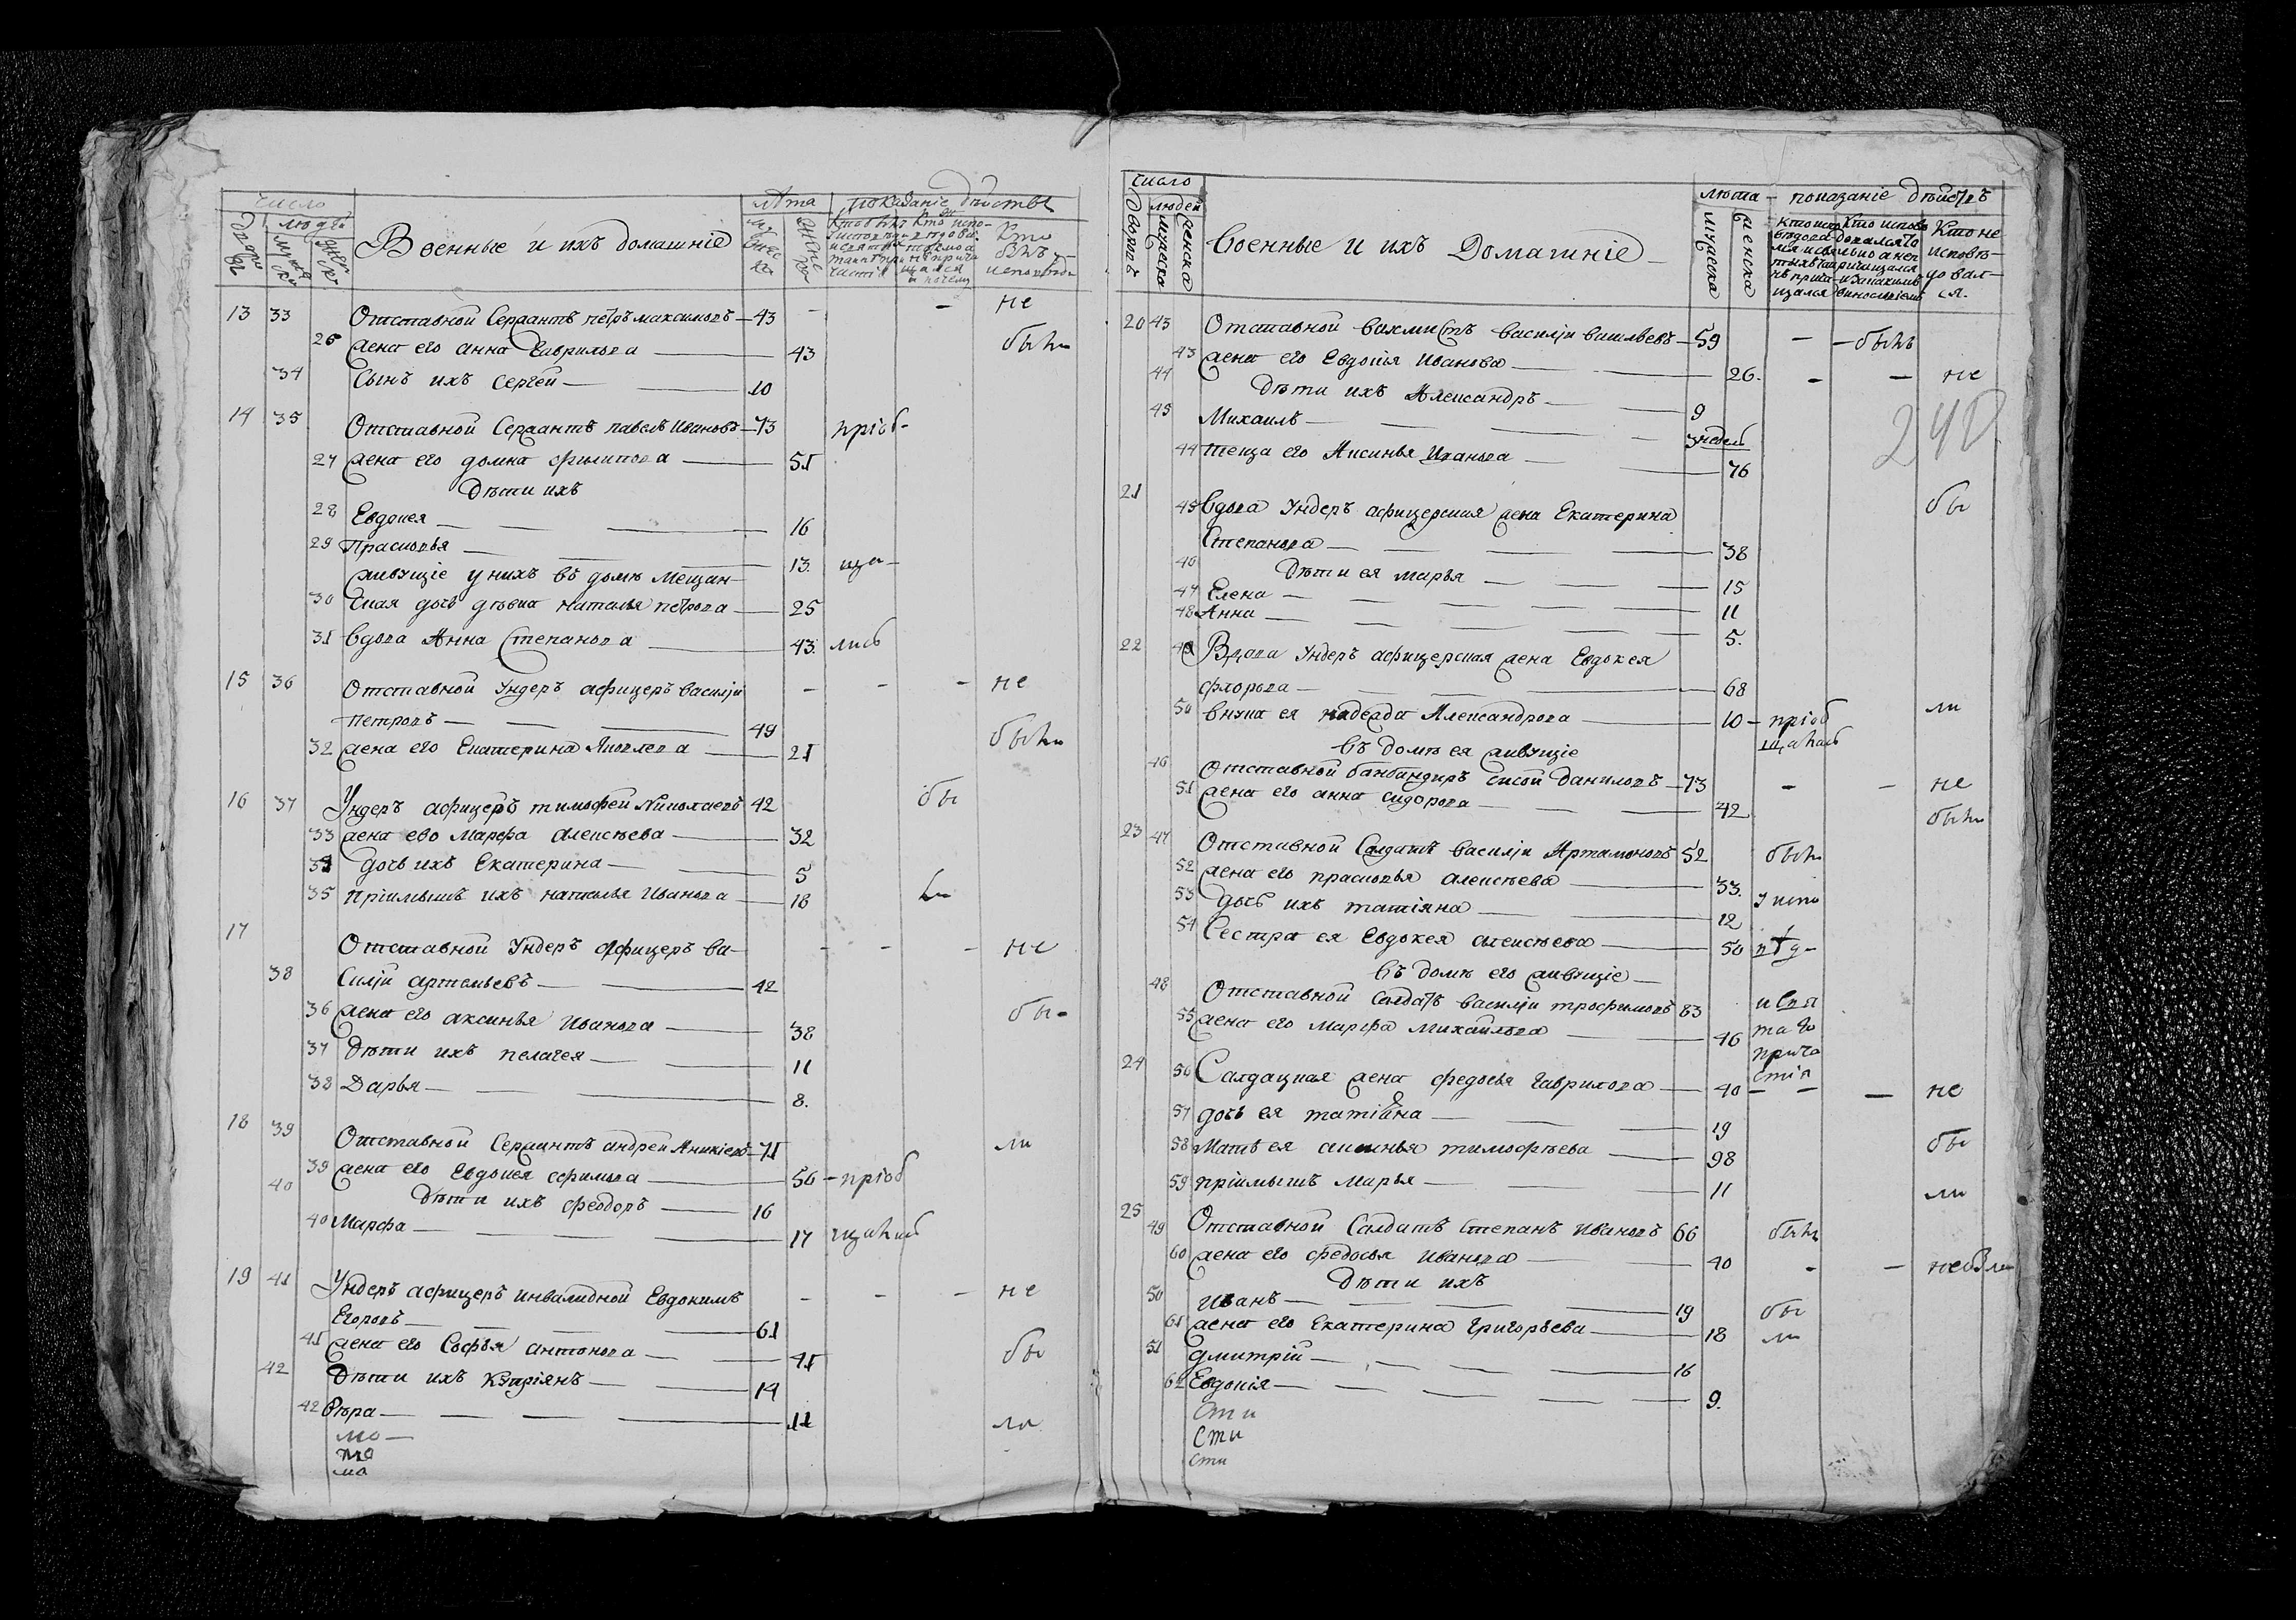 число
Дворовъ
людей
мужеска
женска
Военные и ихъ домашніе
лѣта
мужеска
женска
показаніе дѣйства
Кто не
былъ
исповѣди
13 33 Отставной Сержантъ петръ максимовъ — 43 — — не
26 жена его анна Гаврилова — 43 были
34 Сынъ ихъ Сергей — 10
14 35 Отставной Сержантъ павелъ Ивановъ — 73 пріоб-
27 жена его домна филипова — 51
Дѣти ихъ
28 Евдокея — 16
29 Прасковья — 13. ща-
живущіе у нихъ въ домѣ Мещан-
30 ская дочь дѣвка наталья петрова — 25
31 вдова Анна Степанова — 43. лись
15 36 Отставной Ундеръ афицеръ василій — — — не
петровъ — 49
32 жена его Екатерина Яковлева — 21 были
16 37 Ундеръ афицеръ тимофей Николаевъ 42 бы
33 жена ево Марфа алексѣева — 32
34 дочь ихъ Екатерина — 5
35 пріимышъ ихъ наталья Иванова — 18 ли
17 Отставной Ундеръ афицеръ ва- — — — не
38 силій артемьевъ — 42
36 жена его аксинья Иванова — 38 бы-
37 Дѣти ихъ пелагея — 11
38 Дарья — 8.
18 39 Отставной Сержантъ андрей Аникіевъ — 71 ли
39 жена его Евдокея ефимова — 56 — пріоб
40 Дѣти ихъ феодоръ — 16
40 Марфа — 17 щались
19 41 Ундеръ афицеръ инвалидной Евдокимъ — — — не
Егоровъ — 61
41 жена его Софья антонова — 41 бы
42 Дѣти ихъ Кипріянъ — 14
42 Вѣра — 11 ли
мо —
мо
мо
число
Дворовъ
людей
мужеска
женска
Военные и ихъ Домашніе —
лѣта — показаніе дѣйствъ
мужеска
женска
Кто не
исповѣ-
довал-
ся.
20 43 Отставной вахмистъ василій васильевъ — 59 — — былъ
43 жена его Евдокія Иванова — 26. — — не
44 Дѣти ихъ Александръ — 9
240
45 Михаилъ — 3 недел
44 теща его Аксинья Иванова — 76
21 45 вдова Ундеръ афицерская жена Екатерина бы
Степанова — 38
46 Дѣти ея марья — 15
47 Елена — 11
48 Анна — 5.
22 49 Вдова Ундеръ афицерская жена Евдокея
флорова — 68
50 внука ея надежда Александрова — 10 — пріоб ли
въ домѣ ея живущіе щалась
46 Отставной банбандиръ сисой даниловъ — 73 — — не
51 жена его анна сидорова — 42 были
23 47 Отставной Салдатъ василій Артамоновъ 52 были
52 жена его прасковья алексѣева — 33. у испо
53 дочь ихъ татіяна — 12
54 Сестра ея Евдокея алексѣева — 50
въ домѣ его живущіе —
48 Отставной салдатъ василій трофимовъ 83 и свя
55 жена его Марфа михайлова — 46 таго
прича
стія
24 56 Салдацкая жена федосья Гаврилова — 40 — — — не
57 дочь ея татіяна — 19
58 Мать ея аксинья тимофѣева — 98 бы
59 пріимышъ Марья — 11 ли
25 49 Отставной Салдатъ Степанъ Ивановъ 66 былъ
60 жена его федосья Иванова — 40 — — не была
Дѣти ихъ
50 Иванъ — 19 бы
61 жена его Екатерина Григорьева — 18 ли
51 дмитрій — 16
62 Евдокія — 9.
Сти
Сти
сти